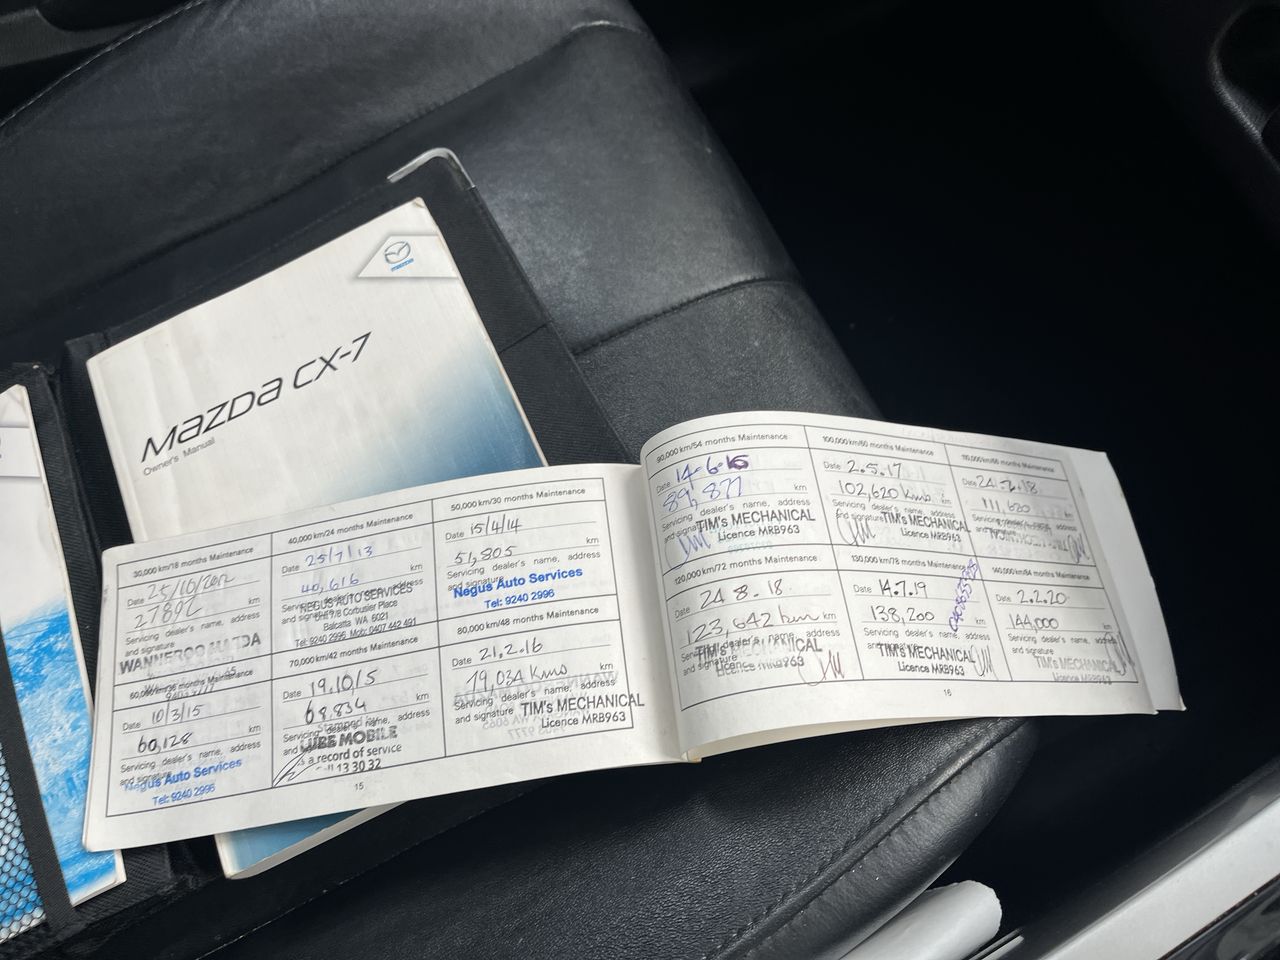 mazda
MAZDA CX-7
Owner's Manual
30,000 km/18 months Maintenance
Date 25/10/2012
km
Servicing dealer's name, address
and signature
WANNEROO MAZDA
40,000 km/24 months Maintenance
Date 25/7/13
40,616 km
Servicing dealer's name, address
and signature
NEGUS AUTO SERVICES
Unit 7/8 Corbusier Place
Balcatta WA 6021
Tel: 9240 2996 Mob: 0407 442 491
50,000 km/30 months Maintenance
Date 15/4/14
51,805 km
Servicing dealer's name, address
and signature
Negus Auto Services
Tel: 9240 2996
60,000 km/36 months Maintenance
Date 10/3/15
60,128 km
Servicing dealer's name, address
and signature
Negus Auto Services
Tel: 9240 2996
70,000 km/42 months Maintenance
Date 19.10/15
68.834 km
Servicing dealer's name, address
and signature
Stamped by
LUBE MOBILE
as a record of service
13 30 32
80,000 km/48 months Maintenance
Date 21.2.16
79,034 Kms km
Servicing dealer's name, address
and signature
TIM's MECHANICAL
Licence MRB963
15
90,000 km/54 months Maintenance
Date 14-6-16
89,877 km
Servicing dealer's name, address
and signature
TIM's MECHANICAL
Licence MRB963
100,000 km/60 months Maintenance
Date 2.5.17
102,620 kms km
Servicing dealer's name, address
and signature
TIM's MECHANICAL
Licence MRB963
110,000 km/66 months Maintenance
Date 24.2.18
111,620 km
Servicing dealer's name, address
and signature
120,000 km/72 months Maintenance
Date 24.8.18
123,642 km km
Servicing dealer's name, address
and signature
TIM's MECHANICAL
Licence MRB963
130,000 km/78 months Maintenance
Date 14.7.19
138,200 km
Servicing dealer's name, address
and signature
TIM's MECHANICAL
Licence MRB963
140,000 km/84 months Maintenance
Date 2.2.20
144,000 km
Servicing dealer's name, address
and signature
TIM's MECHANICAL
Licence MRB963
16